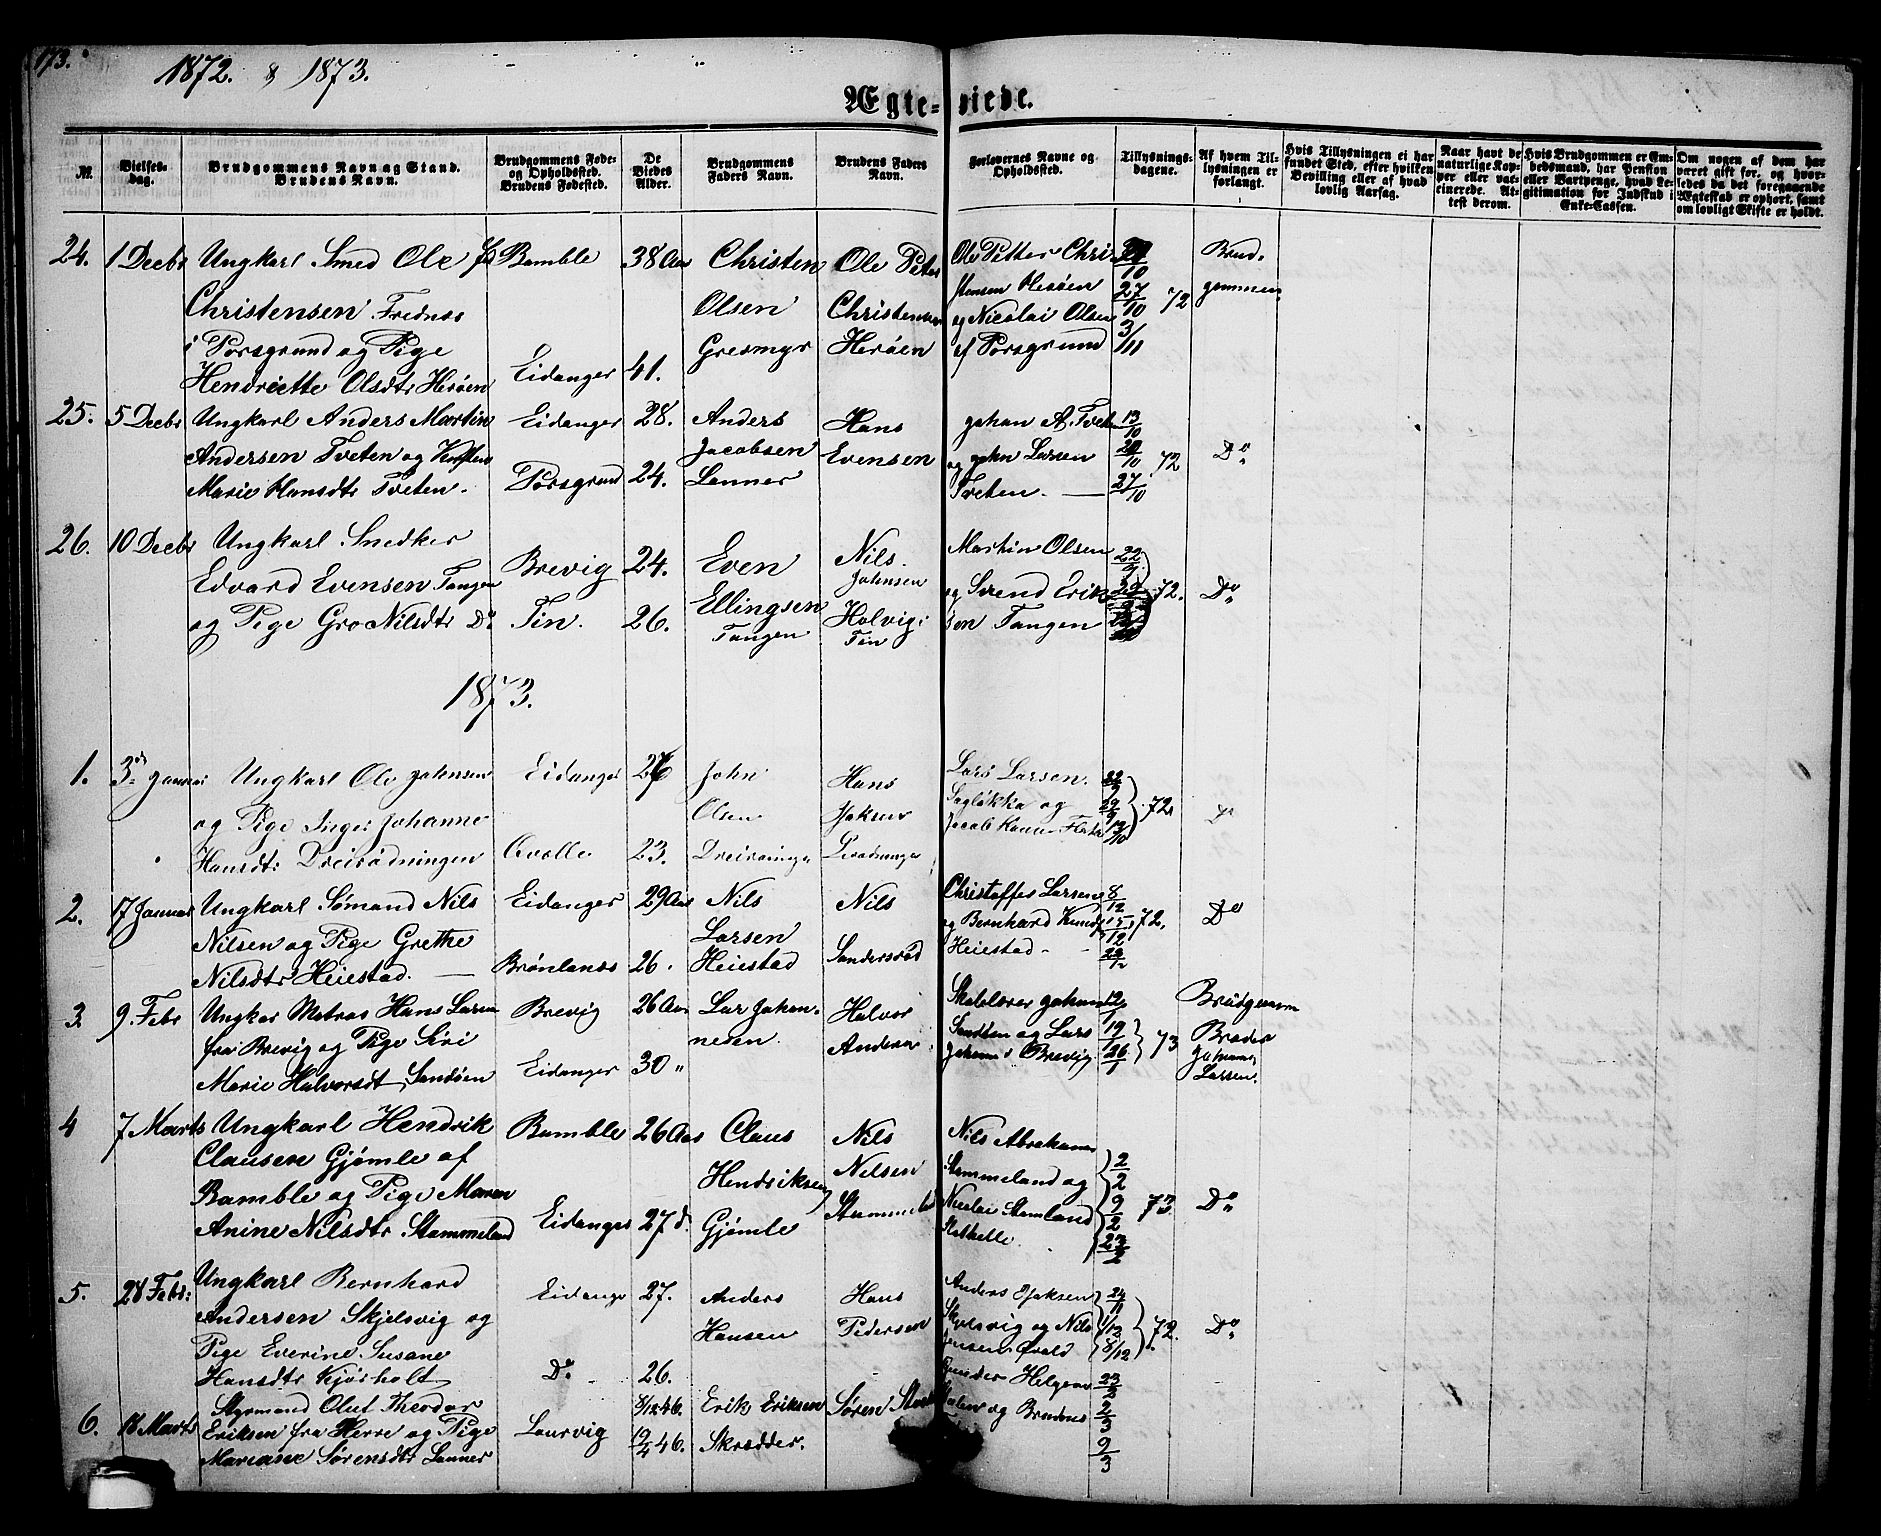 173.
1872. & 1873.
Ægte-viede.
№.
Vielses-dag.
Brudgommens Navn og Stand. Brudens Navn.
Brudgommens Føde- og Opholdssted. Brudens Fødested.
De Viedes Alder.
Brudgommens Faders Navn.
Brudens Faders Navn.
Forlovernes Navne og Opholdssted.
Tillysnings-dagene.
Af hvem Tillysningen er forlangt.
Hvis Tillysningen ei har fundet Sted, efter hvilken Bevilling eller af hvad lovlig Aarsag.
Naar havt de naturlige Kopper eller vaccinerede. Attest derom.
Hvis Brudgommen er Embedsmand, har Pension eller Vartpenge, hvad Legitimation for Indskud i Enke-Cassen.
Om nogen af dem har været gift før, og hvorledes da det foregaaende Ægteskab er ophørt, samt om lovligt Skifte er holdt.
24. 1 Decbr Ungkarl Smed Ole Bamble 38 Aar Christen Ole Peter Ole Petter Chri Brud-
Christensen Frednes Olsen Christensen stensen Herøen 27/10 72 gommen
i Porsgrund og Pige Gresmyr Herøen og Nicolai Olsen 3/11
Hendriette Olsdtr Herøen Eidanger 41. af Porsgrund
25. 5 Decbr Ungkarl Anders Martin Eidanger 28. Anders Hans Johan A. Tveten 13/10
Andersen Tveten og Jacobsen Evensen og John Larsen 20/10 72 Do
Marie Hansdtr Tveten. Porsgrund 24. Lanner Tveten. 27/10
26. 10 Decbr Ungkarl Snedker Brevig 24. Even Nils Martin Olsen 22/9
Edvard Evensen Tangen Ellingsen Johnsen og Svend Erik 72. Do
og Pige Gro Nilsdtr Do Tin. 26. Tangen Tin sen Tangen
1873.
1. 3 Januar Ungkarl Ole Johnsen Eidanger John Hans Lars Larsen. 22/9
og Pige Inger Johanne Olsen Løkka og 29/9 72.
Hansdtr 23. Jacob 13/10
2. 17 Januar Ungkarl Sømand Nils Eidanger 29 Aar Nils Nils Christoffer Larsen 8/12
Nilsen og Pige Grethe Larsen og Bernhard 15/12 72. Do
Nilsdtr Heiestad. Brønlanes 26. Heiestad Sandersrød Heiestad
3 9. Febr Ungkar Matros Hans Larsen Brevig 26 Aar Lar Johan- Halvor Skolelærer Johan 12/1 Brudgommen
fra Brevig og Pige Siri nesen. Anderse og Lars 19/1 73 Broder
Marie Halvorsdt Sandøen Eidanger 30 " Brevig. 26/1 Larsen.
4 7 Marts Ungkarl Hendrik Bamble 26 Aar Claus Nils Nils Abraham
Clausen Gjømle af Hendriksen Nilsen Stammeland og 2/2
Bamble og Pige Maren Stammela Nicolai Stamland 9/2 73. Do
Anine Nilsdtr Stammeland Eidanger 27 d. Gjømle 23/2
5. 28 Febr: Ungkarl Bernhard Eidanger 27. Anders Hans Anders 24/11
Andersen Skjelsvig og Hansen Pedersen Skjelsvig og Nils 1/12 72. Do
Pige Everine Susane Jensen Ørald 8/12
Hansdtr Kjørholt Do 26. Helgesen 23/2
6. 18 Marts Styrmand Oluf Theodor 46. Erik Eriksen Søren og Brudens 2/3
Eriksen fra Herre og Pige Laurvig 19/4 46. Skrædder. 9/3
Mariane Sørensdtr Lanner